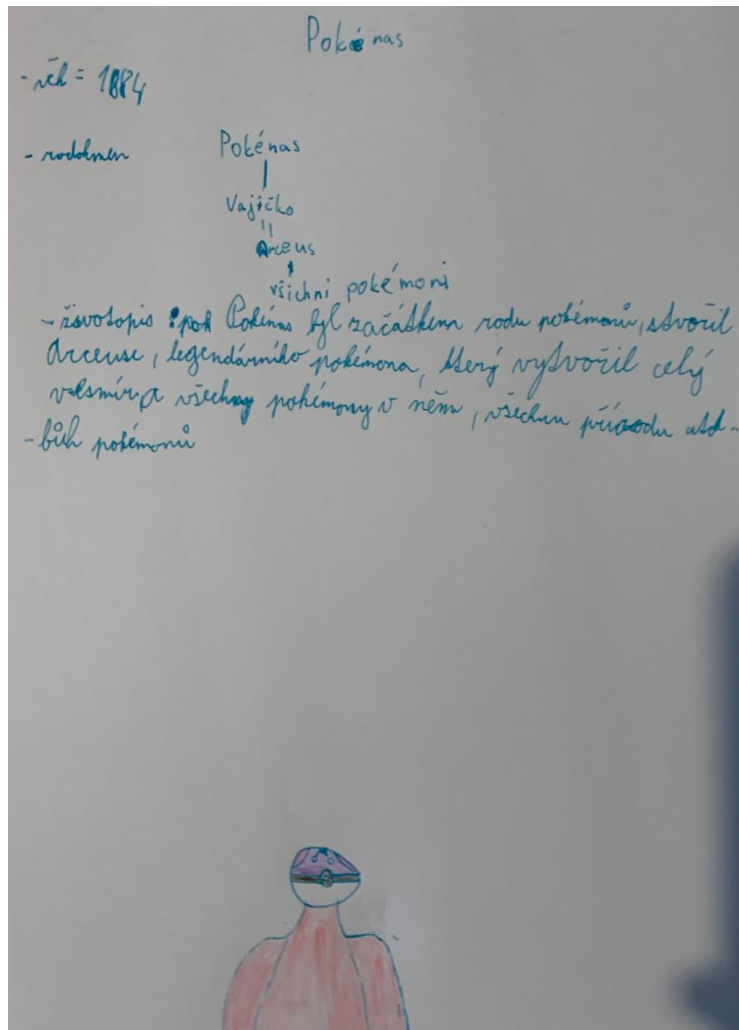 Pokénas
- věk = 1884
- rodokmen
Pokénas
Vajíčko
Arceus
všichni pokémoni
- životopis : Pokénas byl začátkem rodu pokémonů, stvořil
Arceuse, legendárního pokémona, který vytvořil celý
vesmír a všechny pokémony v něm, všechnu přírodu atd.
- bůh pokémonů